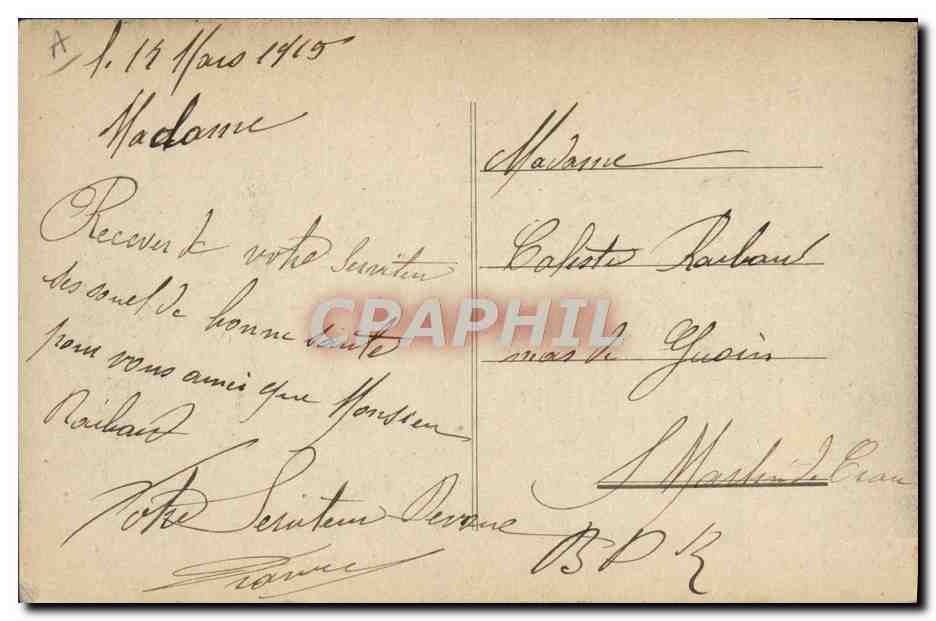 A
l. 12 Mars 1915
Madame
Recever de votre Serviteur
ses souet de bonne sante
pour vous ainci que Monsieur
Raibaud
Votre Serviteur Devoue
Madame
Celeste Raibaud
mas de
St Martin de Crau
B D R
CRAPHIL